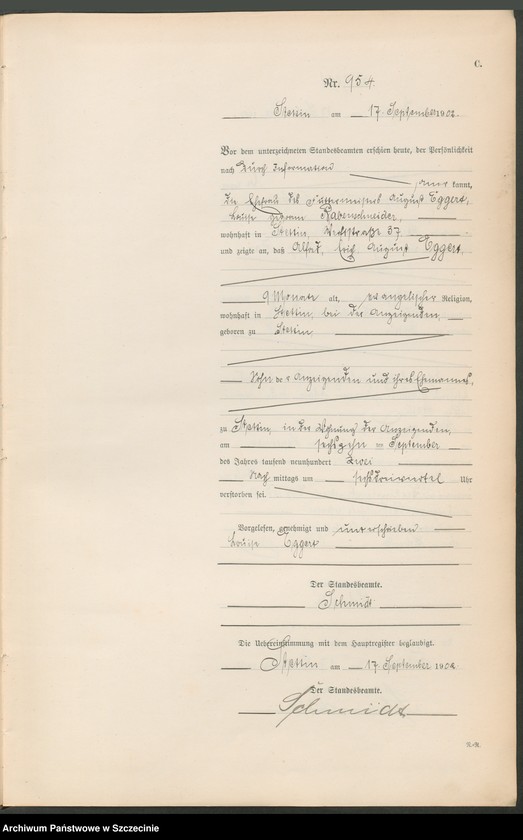 C.
Nr. 954.
Stettin am 17. September 1902.
Vor dem unterzeichneten Standesbeamten erschien heute, der Persönlichkeit
nach durch Information
kannt,
die Ehefrau des August Eggert,
Louise geborene Rabenschneider,
wohnhaft in Stettin, 37
und zeigte an, daß Alfred, Erich, August Eggert,
9 Monate alt, evangelischer Religion,
wohnhaft in Stettin, bei der Anzeigenden,
geboren zu Stettin,
Sohn der Anzeigenden und ihres Ehemannes,
zu Stettin, in der Wohnung der Anzeigenden,
am sechszehnten September
des Jahres tausend neunhundert zwei
Nachmittags um Uhr
verstorben sei.
Vorgelesen, genehmigt und unterschrieben
Louise Eggert
Der Standesbeamte.
Schmidt
Die Uebereinstimmung mit dem Hauptregister beglaubigt.
Stettin am 17. September 1902
Der Standesbeamte.
Schmidt
Archiwum Państwowe w Szczecinie